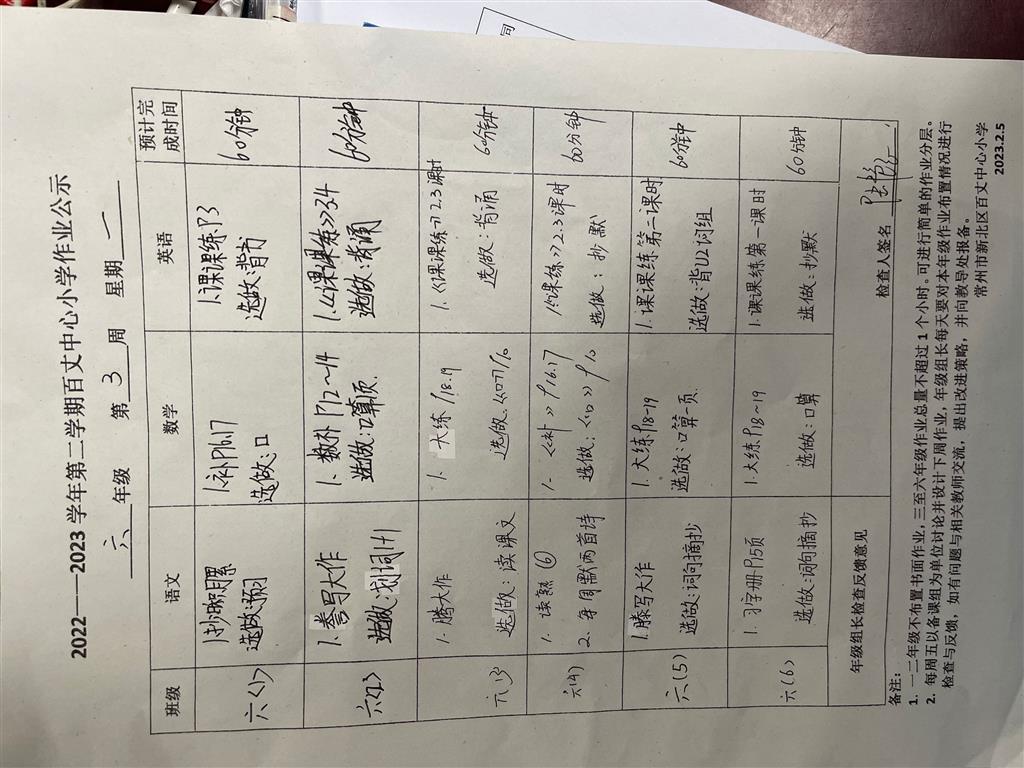 司
2022——2023学年第二学期百丈中心小学作业公示
六年级 第3周 星期一
班级 语文 数学 英语 预计完成时间
六〈1〉 1.抄 选做:预习 1.补P16.17 选做:口 1.课课练P3 选做:背书 60分钟
六〈2〉 1.誊写大作 选做:划词1+1 1.数补P12~14 选做:口算1页 1.《课课练》3.4 选做:背诵 60分钟
六(3) 1.腾大作 选做:读课文 1.大练P18.19 选做:《口》P10 1.《课课练》2.3课时 选做:背诵 60分钟
六(4) 1.读熟⑥ 2.每周默两首诗 1.《补》P16.17 选做:《口》P10 1.《课练》2.3课时 选做:抄默 60分钟
六(5) 1.滕写大作 选做:词句摘抄 1.大练P18-19 选做:口算一页 1.课课练第二课时 选做:背U2词组 60分钟
六(6) 1.习字册P15页 选做:词句摘抄 1.大练P18~19 选做:口算 1.课课练第一课时 选做:抄默 60分钟
年级组长检查反馈意见 检查人签名
备注:
1. 一二年级不布置书面作业,三至六年级作业总量不超过1个小时。可进行简单的作业分层。
2. 每周五以备课组为单位讨论并设计下周作业,年级组长每天要对本年级作业布置情况进行
检查与反馈,如有问题与相关教师交流,提出改进策略,并向教导处报备。
常州市新北区百丈中心小学
2023.2.5